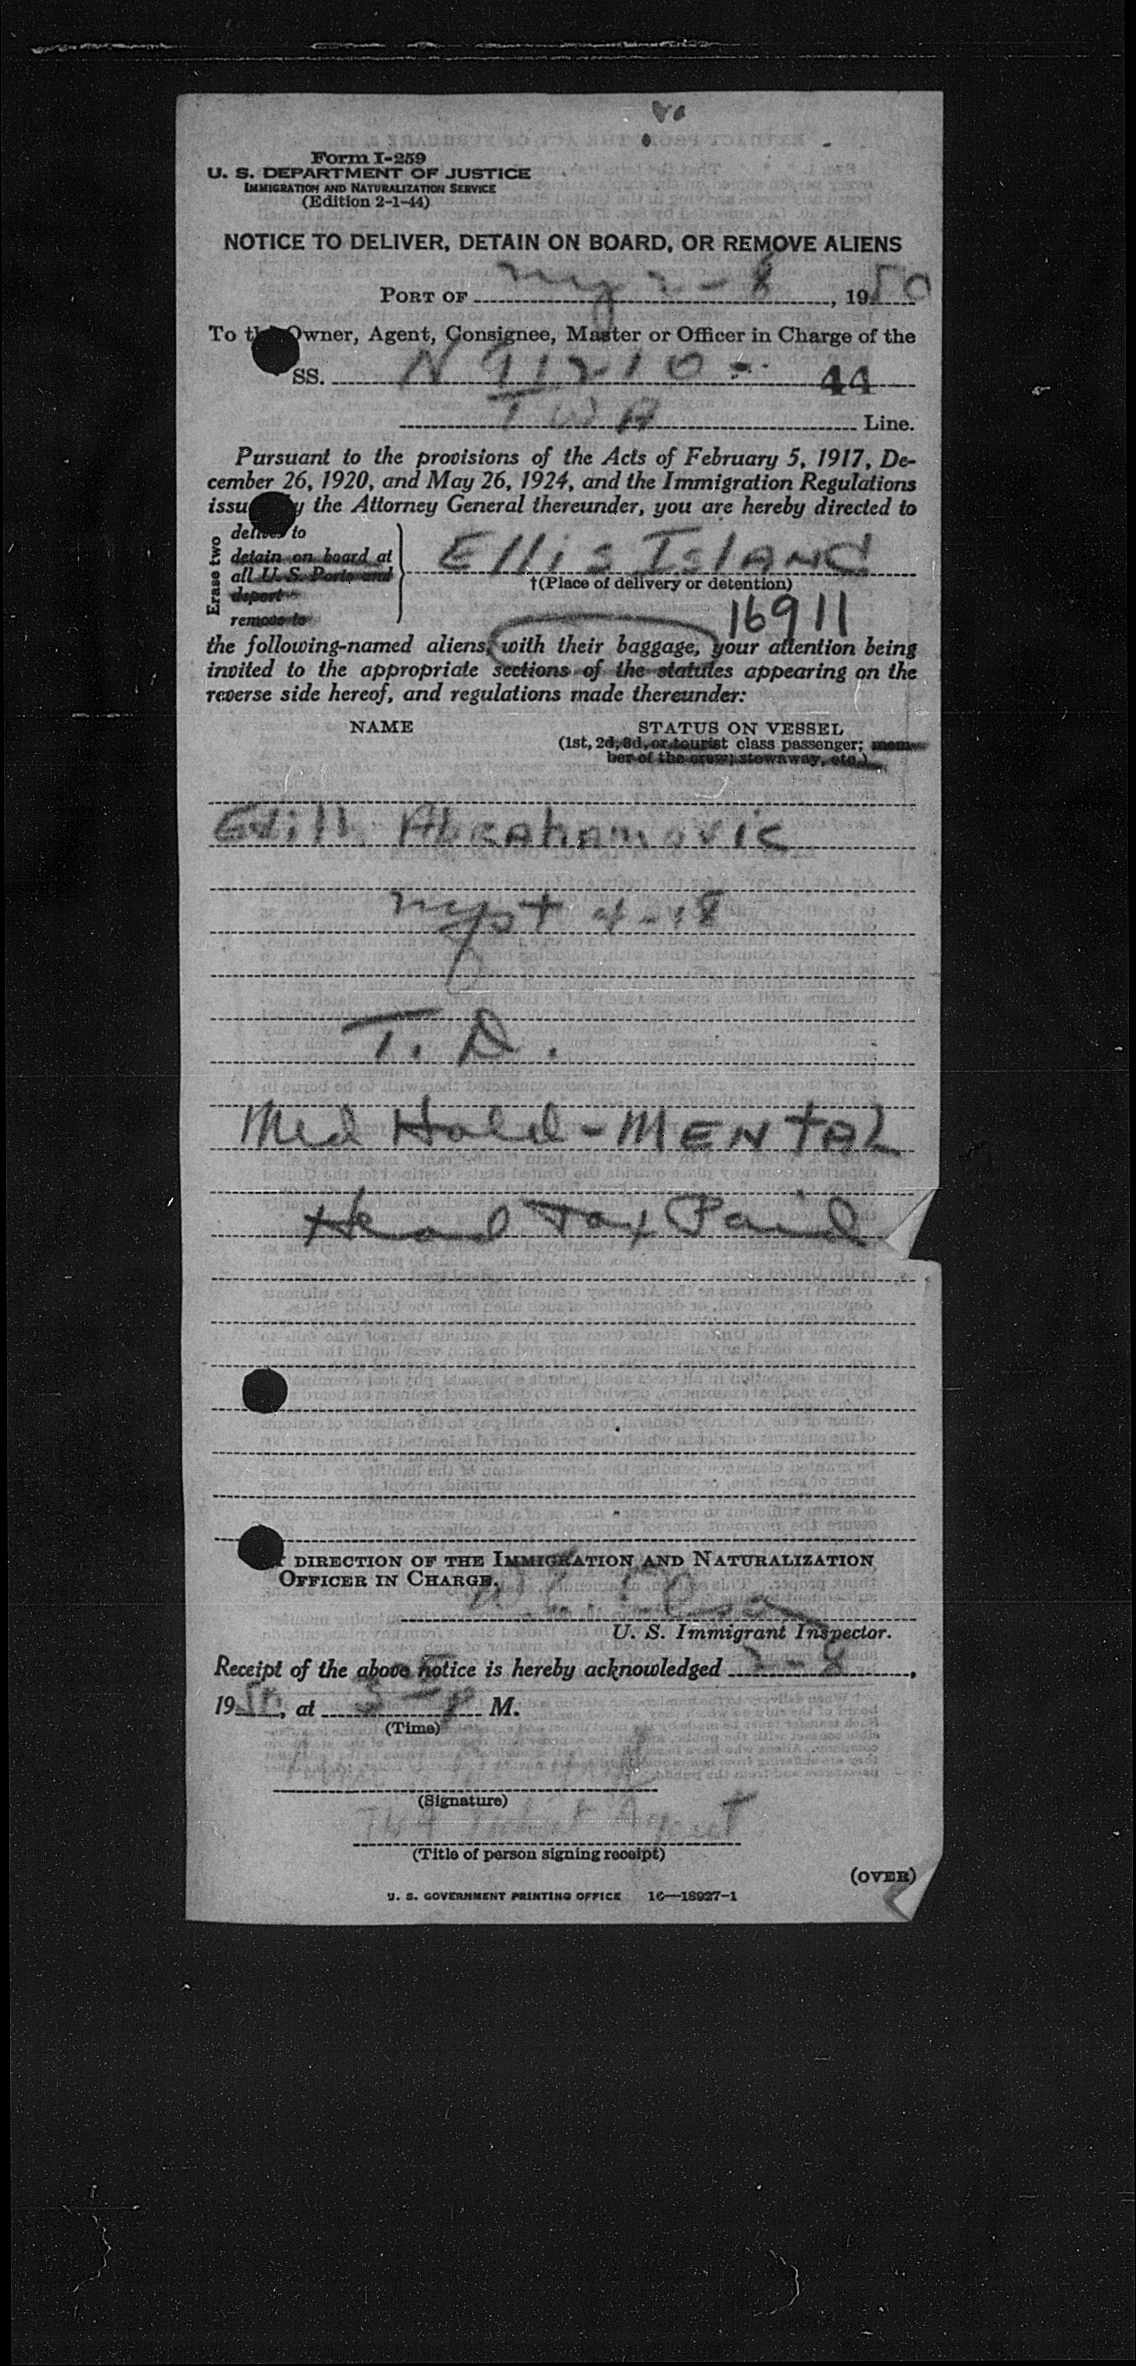 Form I-259
U. S. DEPARTMENT OF JUSTICE
IMMIGRATION AND NATURALIZATION SERVICE
(Edition 2-1-44)
NOTICE TO DELIVER, DETAIN ON BOARD, OR REMOVE ALIENS
PORT OF ny 2-8, 1950
To the Owner, Agent, Consignee, Master or Officer in Charge of the
SS. N 91210 - 44
TWA Line.
Pursuant to the provisions of the Acts of February 5, 1917, De-
cember 26, 1920, and May 26, 1924, and the Immigration Regulations
issued by the Attorney General thereunder, you are hereby directed to
Erase two
deliver to
detain on board at
all U. S. Ports and
deport
remove to
Ellis Island
†(Place of delivery or detention)
16911
the following-named aliens, with their baggage, your attention being
invited to the appropriate sections of the statutes appearing on the
reverse side hereof, and regulations made thereunder:
NAME STATUS ON VESSEL
(1st, 2d, 3d, or tourist class passenger; mem-
ber of the crew; stowaway, etc.)
Edith Abrahamovic
4-18
T. D.
Med Hold - MENTAL
Head Tax Paid
DIRECTION OF THE IMMIGRATION AND NATURALIZATION
OFFICER IN CHARGE.
U. S. Immigrant Inspector.
Receipt of the above notice is hereby acknowledged 2-8,
1950, at M.
(Time)
(Signature)
TWA Agent
(Title of person signing receipt)
(OVER)
U. S. GOVERNMENT PRINTING OFFICE 16—18927-1